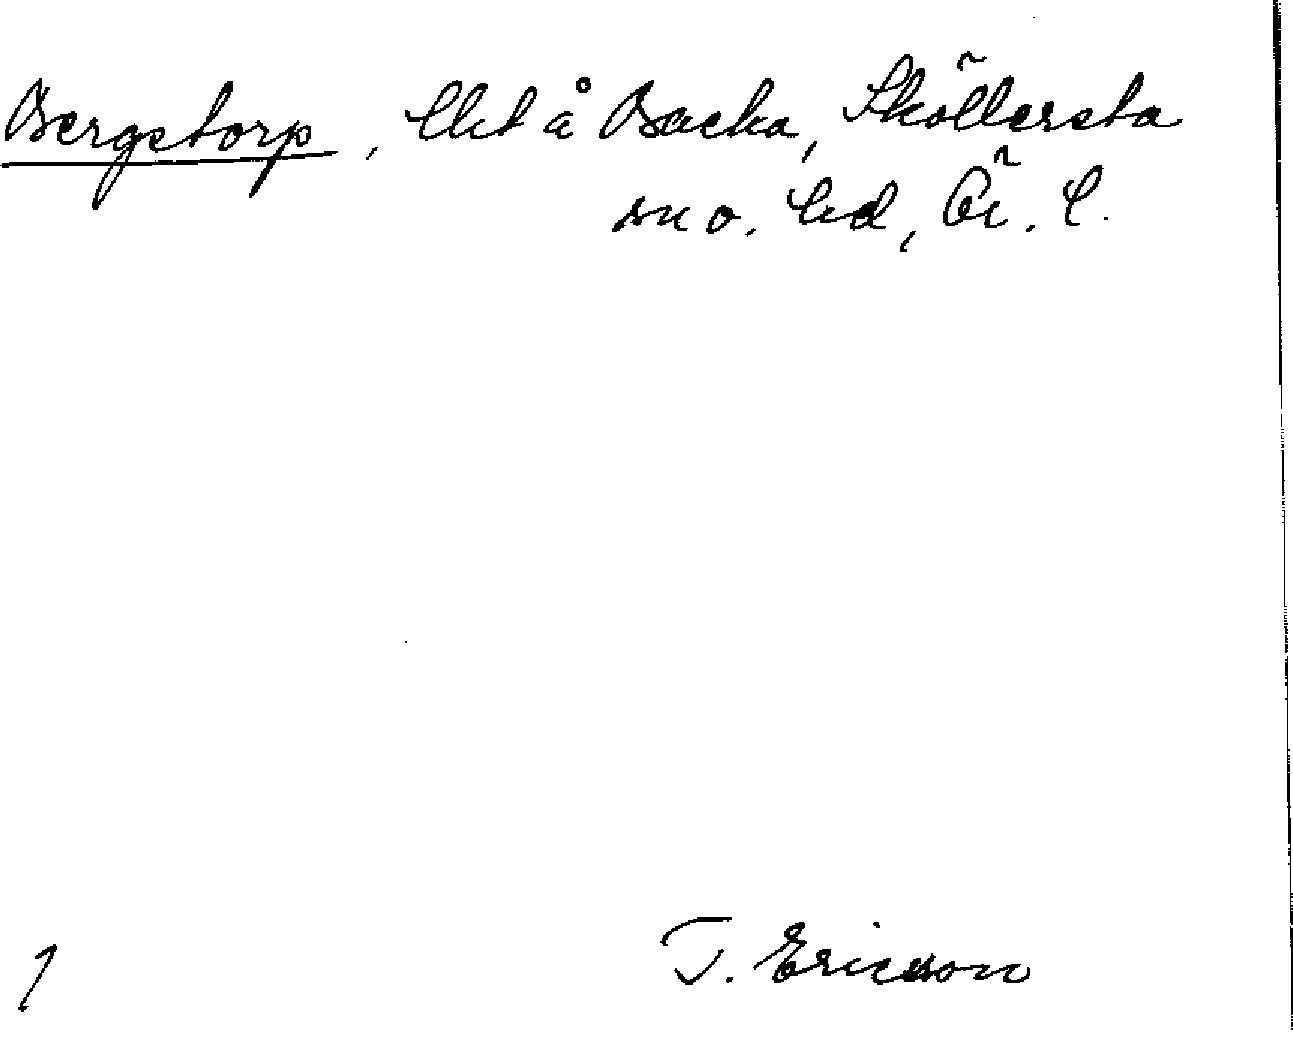 Bergstorp, lht å Backa, Sköllersta
sn o. hd, Ör. l.
T. Ericsson
1